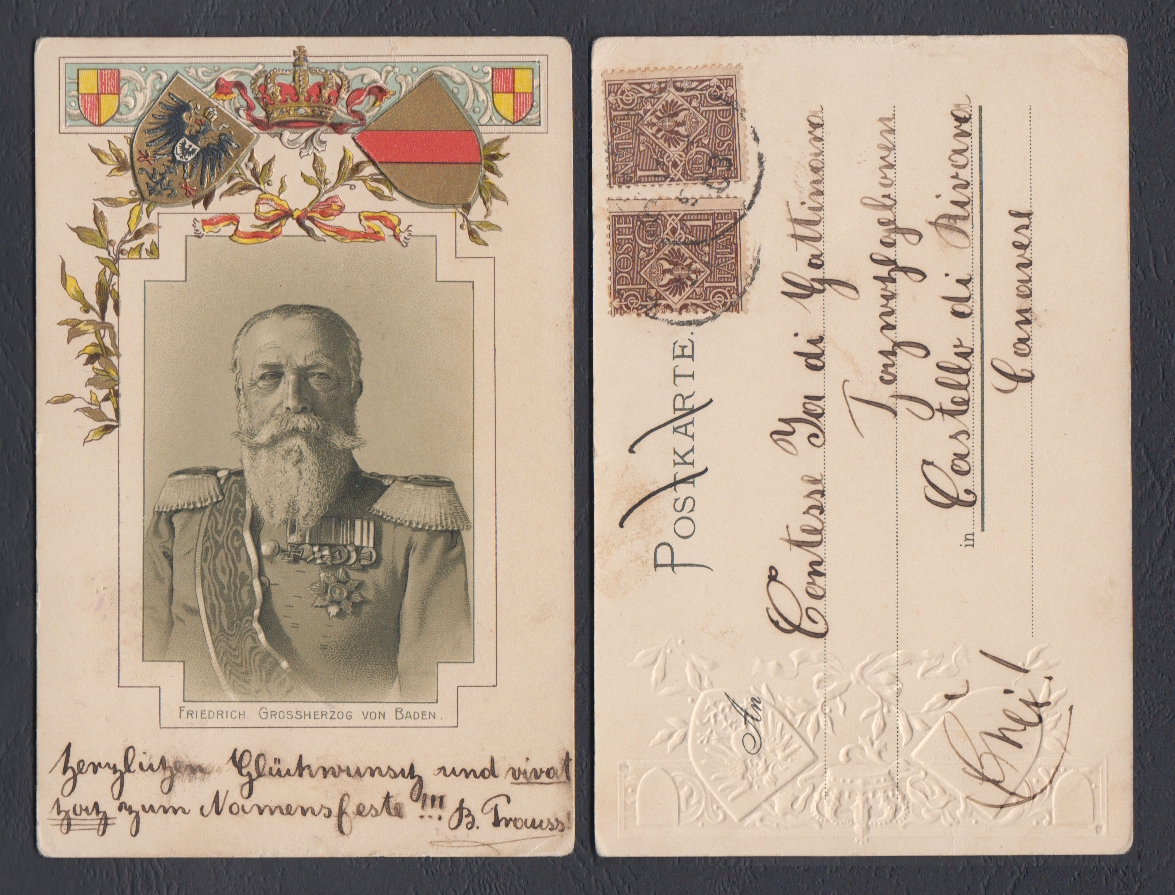 FRIEDRICH GROSSHERZOG VON BADEN.
Herzlichen Glückwunsch und vivat
hoch zum Namensfeste !!! B. Trauss
POSTE ITALIANE
POSTE ITALIANE
03
POSTKARTE.
An
Contesse di Gattinara
in Castello di Rivara
Canavese